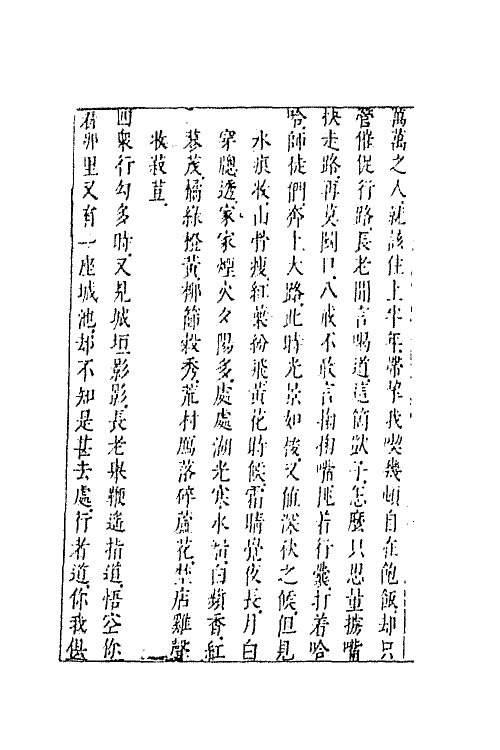 萬萬之人就該住上半年帶挈我喫幾頓自在飽飯却只
管催促行路長老聞言喝道這箇獃子怎麼只思量擄嘴
快走路再莫鬬口八戒不敢言掬掬嘴挑着行囊打着哈
哈師徒們奔上大路此時光景如梭又值深秋之候但見
水痕收山骨瘦紅葉紛飛黃花時候霜晴覺夜長月白
穿牕透家家煙火夕陽多處處湖光寒水溜白蘋香紅
蓼茂橘綠橙黃柳衰穀秀荒村鴈落碎蘆花野店雞聲
收菽荳
四衆行勾多時又見城垣影影長老舉鞭遙指道悟空你
看那里又有一座城池却不知是甚去處行者道你我俱